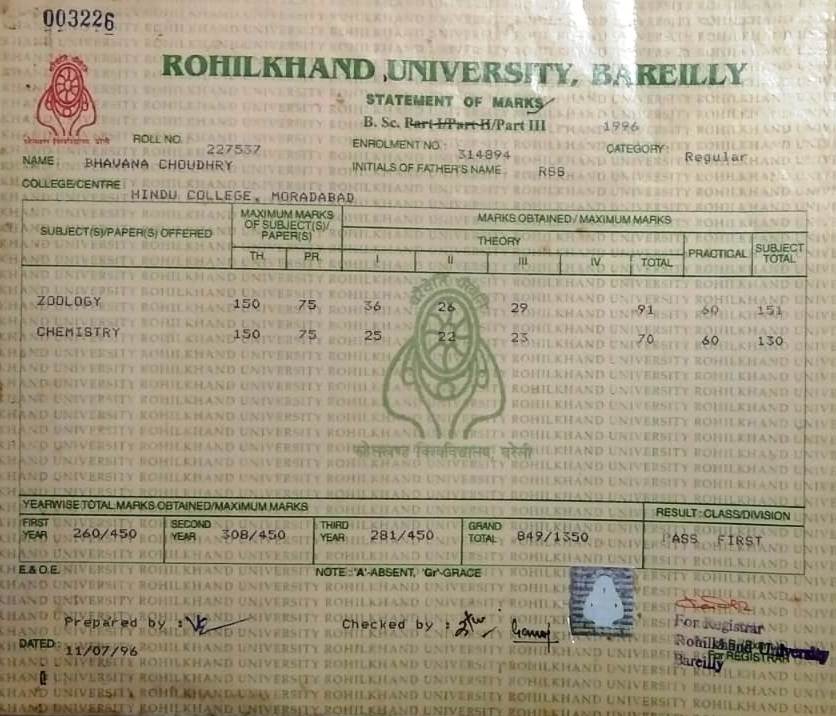 003226
ROHILKHAND UNIVERSITY, BAREILLY
STATEMENT OF MARKS
B. Sc. Part I/Part II/Part III 1996
ROLL NO. 227537 ENROLMENT NO. 314894 CATEGORY: Regular
NAME: BHAVANA CHOUDHRY INITIALS OF FATHER'S NAME: RSS
COLLEGE/CENTRE: HINDU COLLEGE, MORADABAD
SUBJECT(S)/PAPER(S) OFFERED MAXIMUM MARKS OF SUBJECT(S)/PAPER(S) MARKS OBTAINED/MAXIMUM MARKS
THEORY PRACTICAL SUBJECT TOTAL
TH. PR. I II III IV TOTAL
ZOOLOGY 150 75 36 26 29 91 60 151
CHEMISTRY 150 75 25 22 23 70 60 130
रुहेलखण्ड विश्वविद्यालय, बरेली
YEARWISE TOTAL MARKS OBTAINED/MAXIMUM MARKS RESULT: CLASS/DIVISION
FIRST YEAR 260/450 SECOND YEAR 308/450 THIRD YEAR 281/450 GRAND TOTAL 849/1350 PASS FIRST
E.& O.E. NOTE :'A'-ABSENT, 'Gr'-GRACE
Prepared by : Checked by :
For Registrar
Rohilkhand University
For REGISTRAR
Bareilly
DATED: 11/07/96